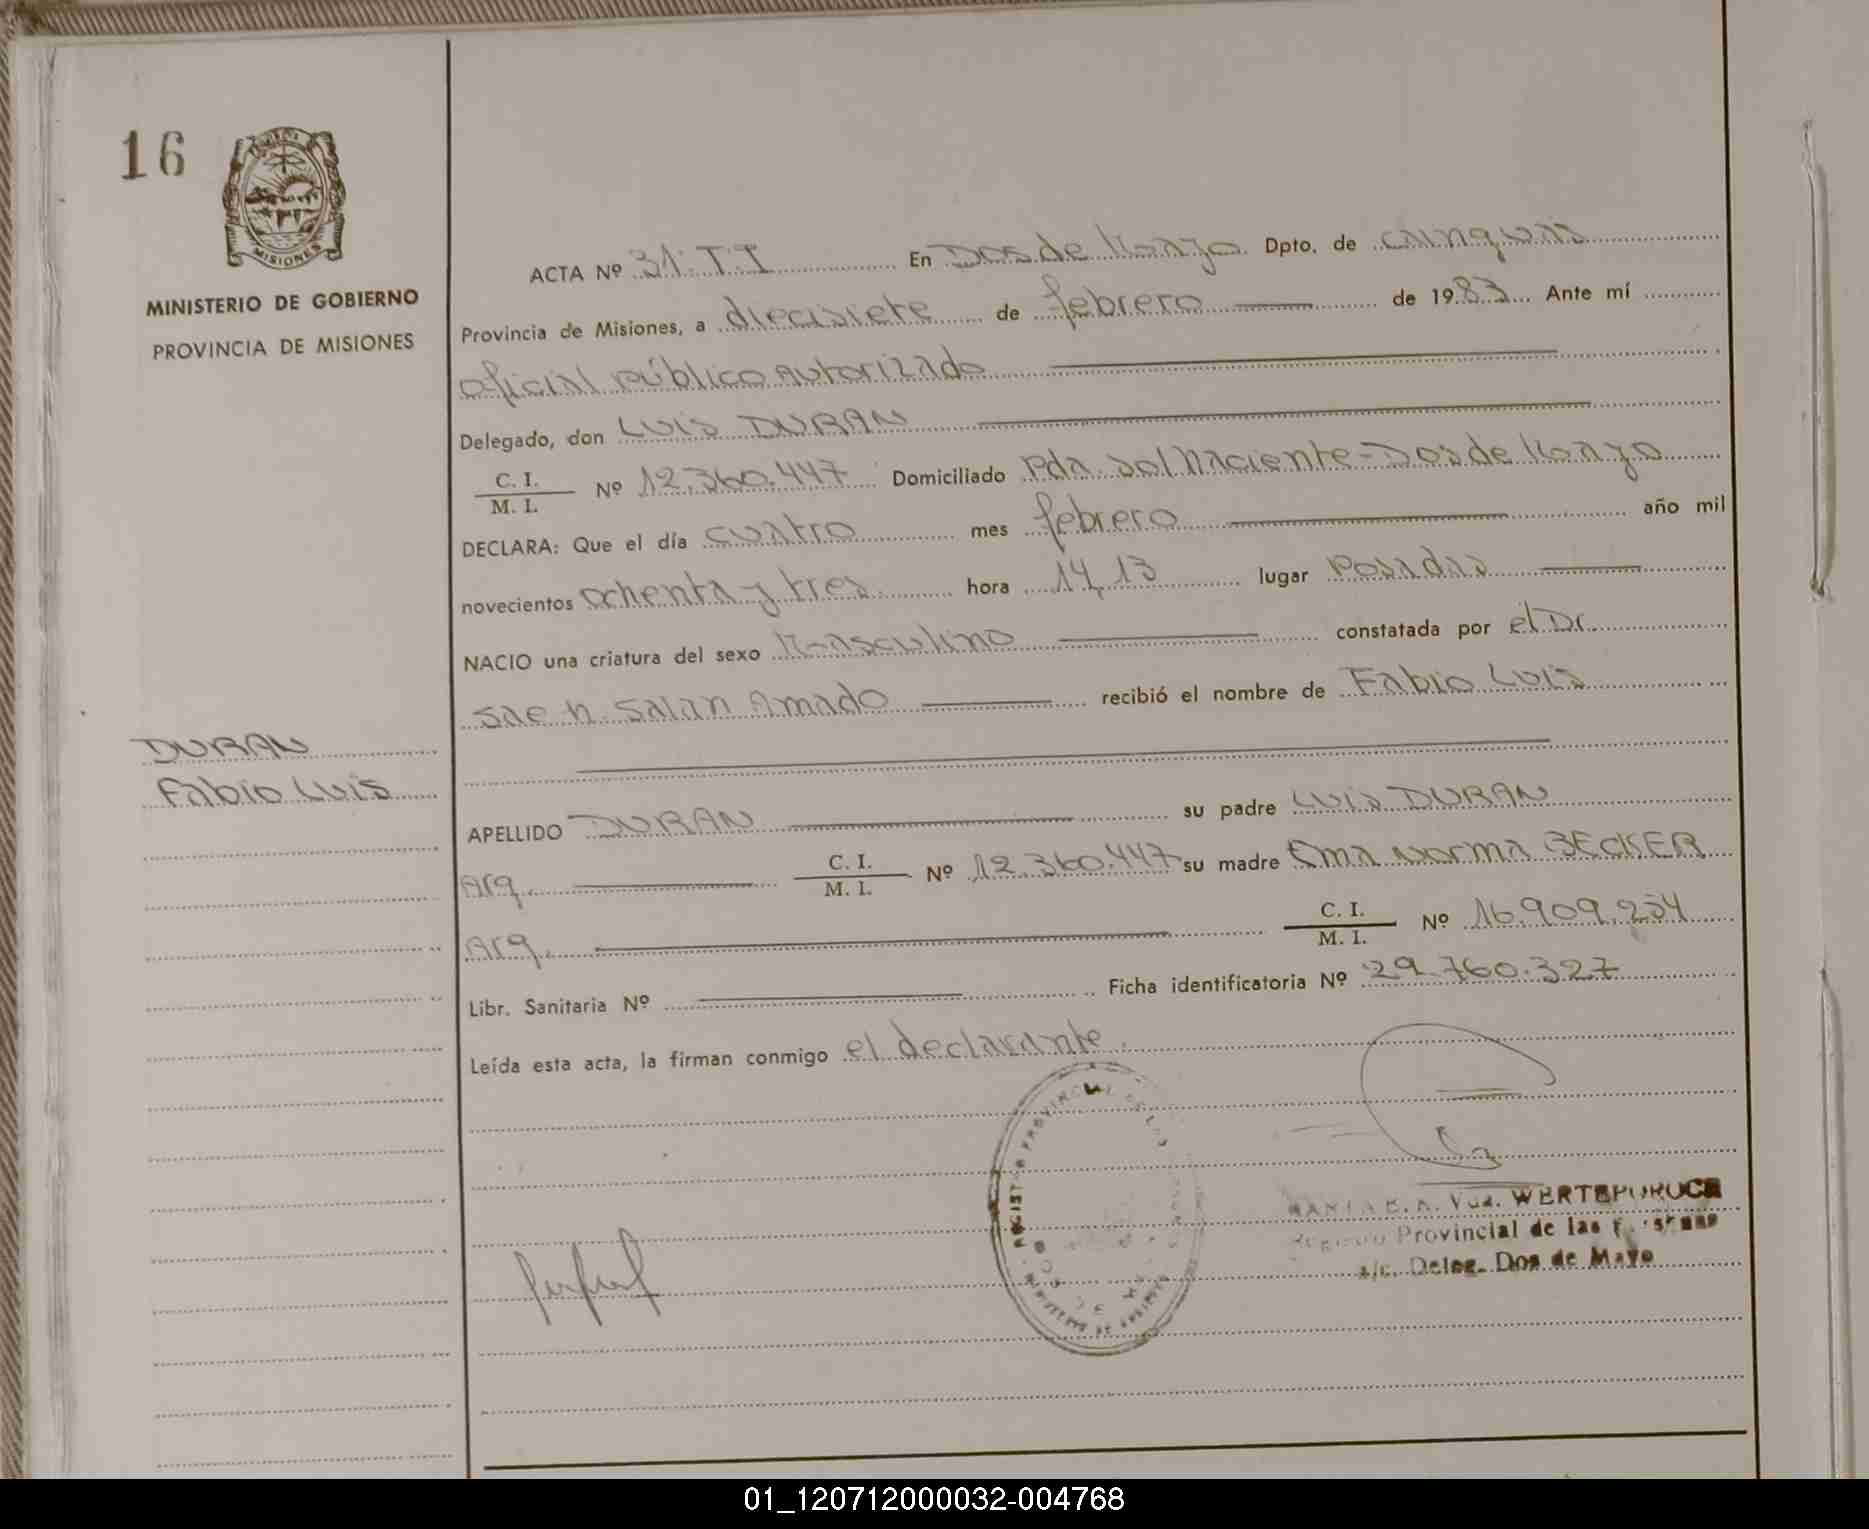 16
MISIONES
MINISTERIO DE GOBIERNO
PROVINCIA DE MISIONES
ACTA Nº 31. T I En Dos de Mayo Dpto. de cainguas
Provincia de Misiones, a diecisiete de febrero de 1983 Ante mí
oficial público autorizado
Delegado, don LUIS DURAN
C. I. / M. I. Nº 12.360.447 Domiciliado Pda. Sol naciente - Dos de Mayo
DECLARA: Que el día cuatro mes febrero año mil
novecientos ochenta y tres hora 14,13 lugar Posadas
NACIO una criatura del sexo Masculino constatada por el Dr.
Amado recibió el nombre de Fabio Luis
DURAN
Fabio Luis
APELLIDO DURAN su padre LUIS DURAN
Arg. C. I. / M. I. Nº 12.360.447 su madre Ema Norma BECKER
Arg. C. I. / M. I. Nº 16.909.254
Libr. Sanitaria Nº Ficha identificatoria Nº 29.760.327
Leída esta acta, la firman conmigo el declarante.
PROVINCIAL DE LAS
Vda.
Provincial de las
a/c. Deleg. Dos de Mayo
01_120712000032-004768